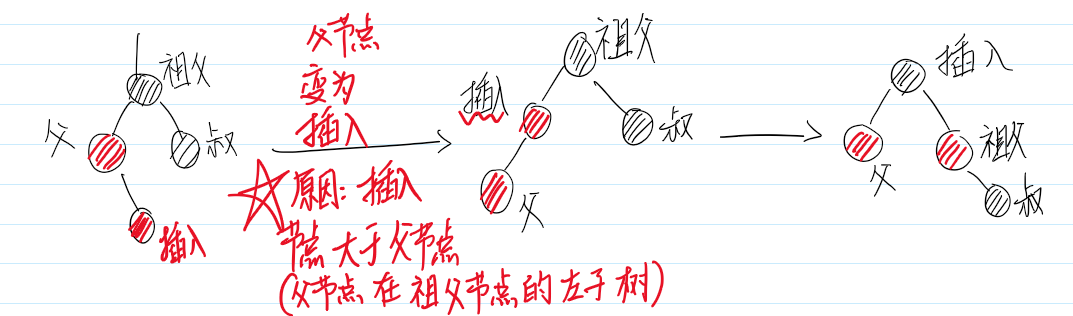 祖父
父
叔
插入
父节点
变为
插入
原因: 插入
节点大于父节点
(父节点在祖父节点的左子树)
祖父
插入
叔
父
插入
父
祖父
叔